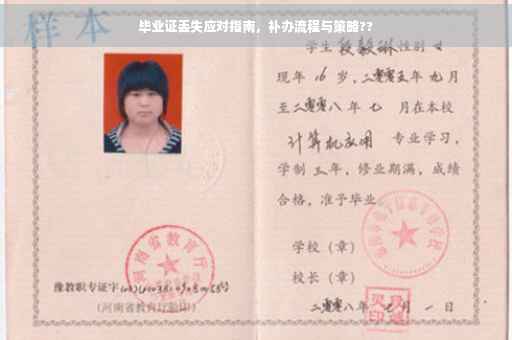 毕业证丢失应对指南，补办流程与策略??
样本
学生 段毅琳 性别 女
现年 16 岁，二零零五年 九 月
至二零零八年 七 月在本校
计算机应用 专业学习，
学制 三 年，修业期满，成绩
合格，准予毕业。
学校（章）
校长（章）
二零零八年 七 月 一 日
河南省教育厅
豫教职专证字
（河南省教育厅验印）